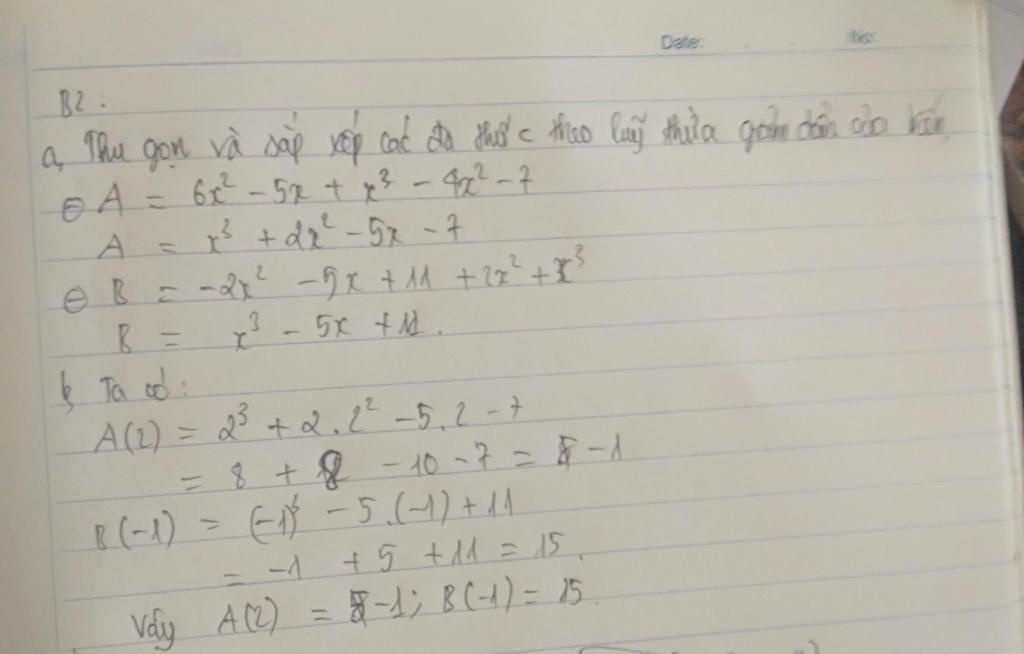 Date: No:
B2:
a, Thu gọn và sắp xếp các đa thức theo luỹ thừa giảm dần của biến
⊖ A = 6x² - 5x + x³ - 4x² - 7
A = x³ + 2x² - 5x - 7
⊖ B = -2x² - 5x + 11 + 2x² + x³
B = x³ - 5x + 11.
b, Ta có:
A(2) = 2³ + 2.2² - 5.2 - 7
= 8 + 8 - 10 - 7 = -1
B(-1) = (-1)³ - 5.(-1) + 11
= -1 + 5 + 11 = 15.
Vậy A(2) = -1; B(-1) = 15.